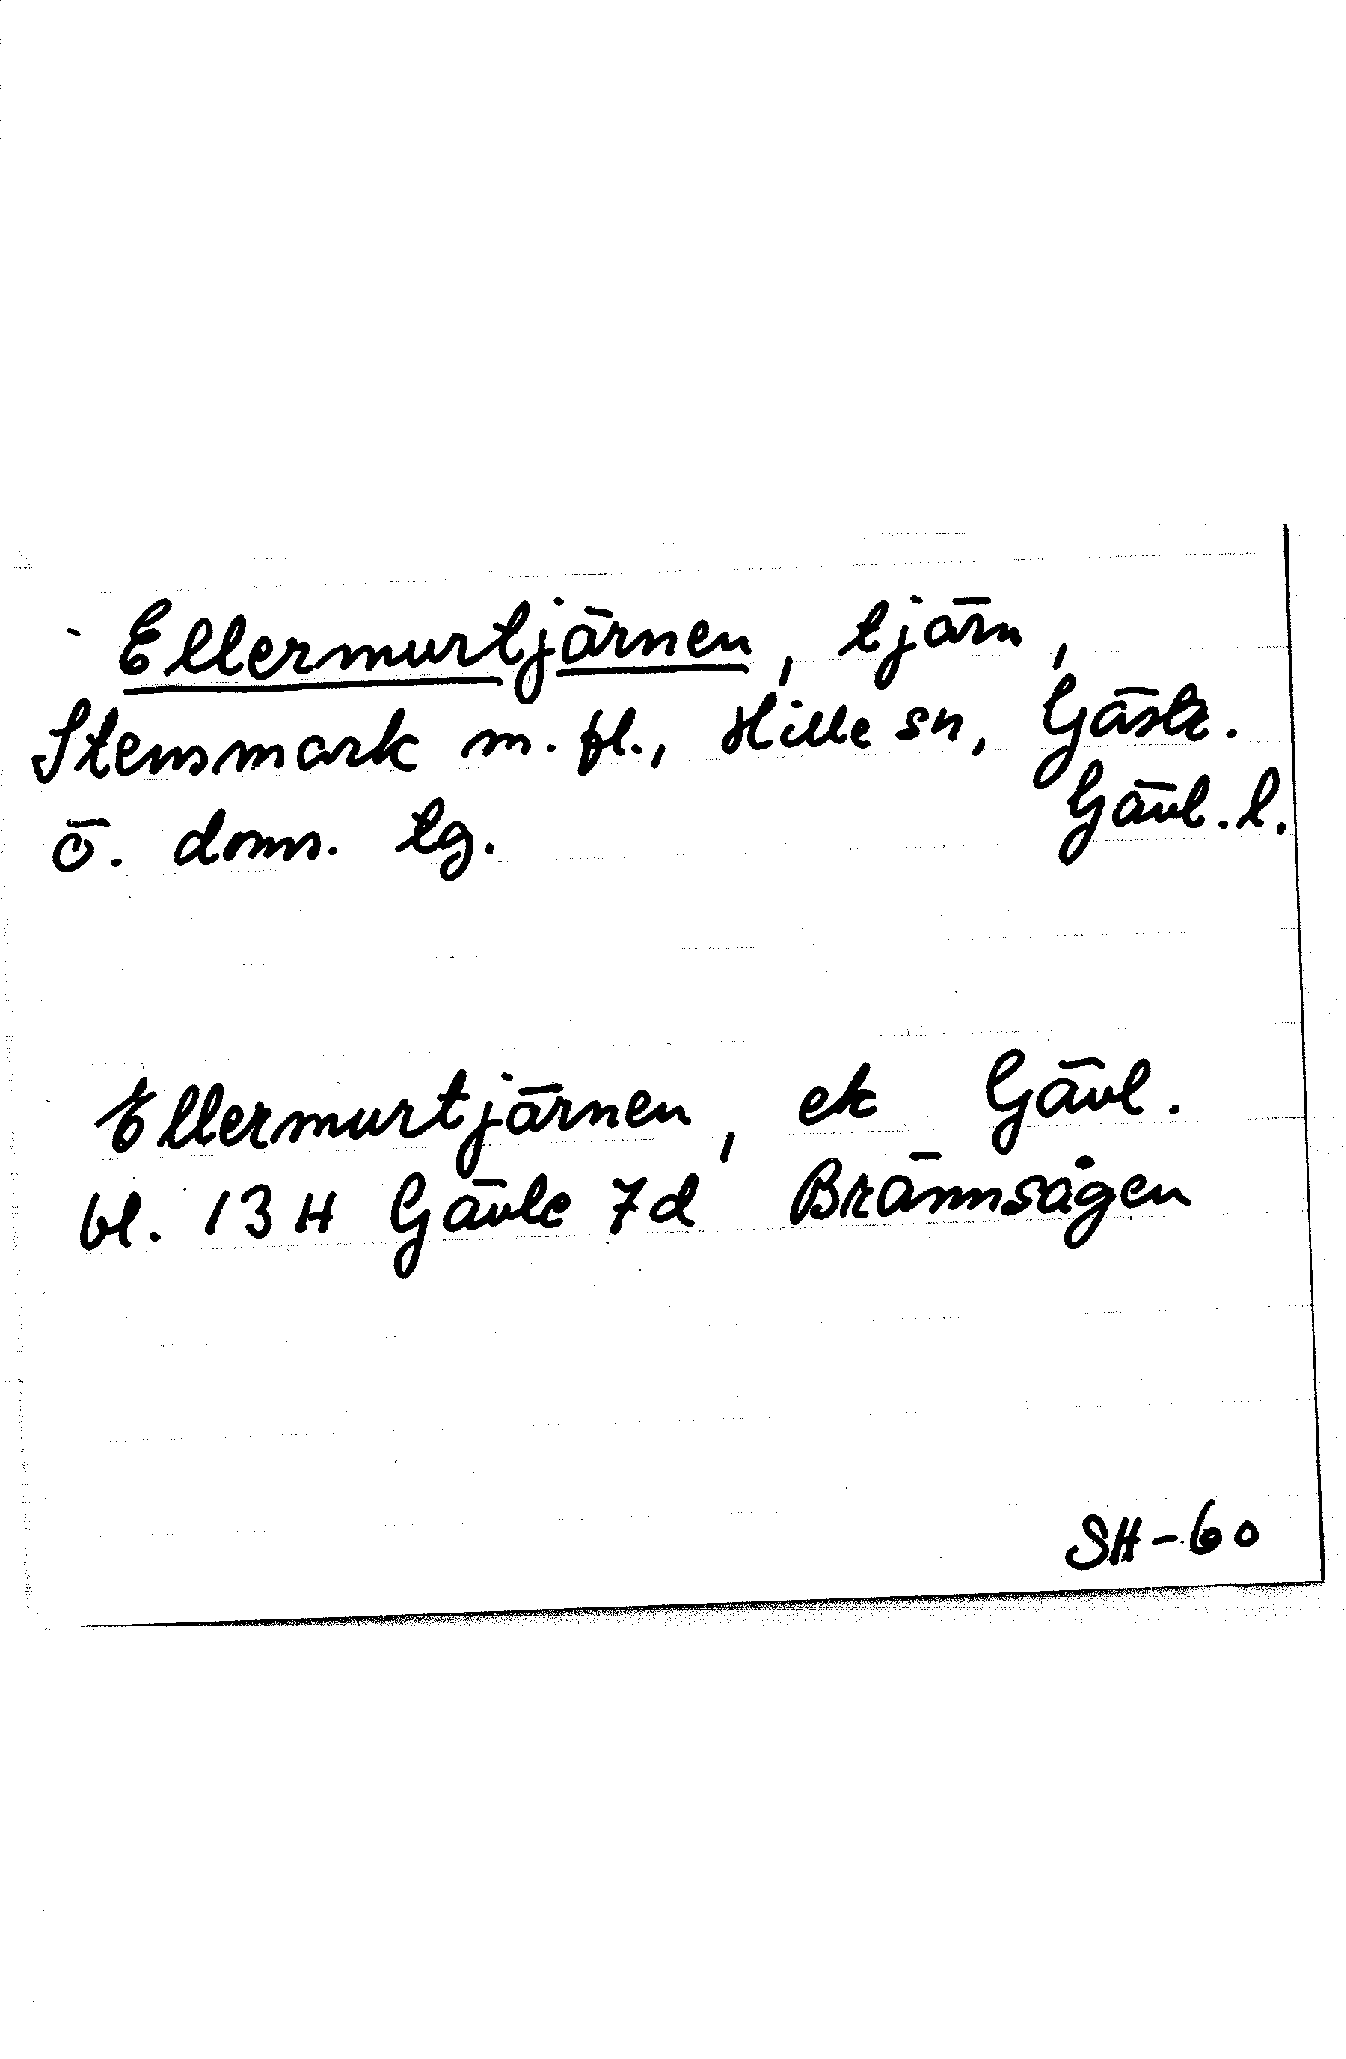 Ellermurtjärnen, tjärn,
Stensmark m. fl., Hille sn, Gästr.
ö. doms. lg. Gävl. l.
Ellermurtjärnen, ek Gävl.
bl. 13 H Gävle 7d Brännsågen
SH-60